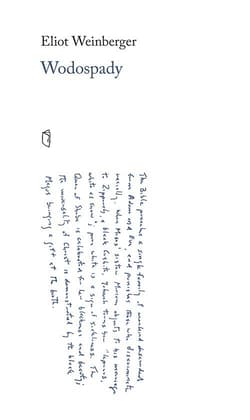 Eliot Weinberger
Wodospady
The Bible preaches a single family of mankind descended
from Adam and Eve, and punishes those who discriminate
racially. When Moses' sister Miriam objects to his marriage
to Zipporah, a black Cushite, Jehovah turns her "leprous,
white as snow"; pure white is a sign of sickliness. The
Queen of Sheba is celebrated for her blackness and beauty;
The universality of Christ is demonstrated by the black
Magus bringing a gift at the birth.